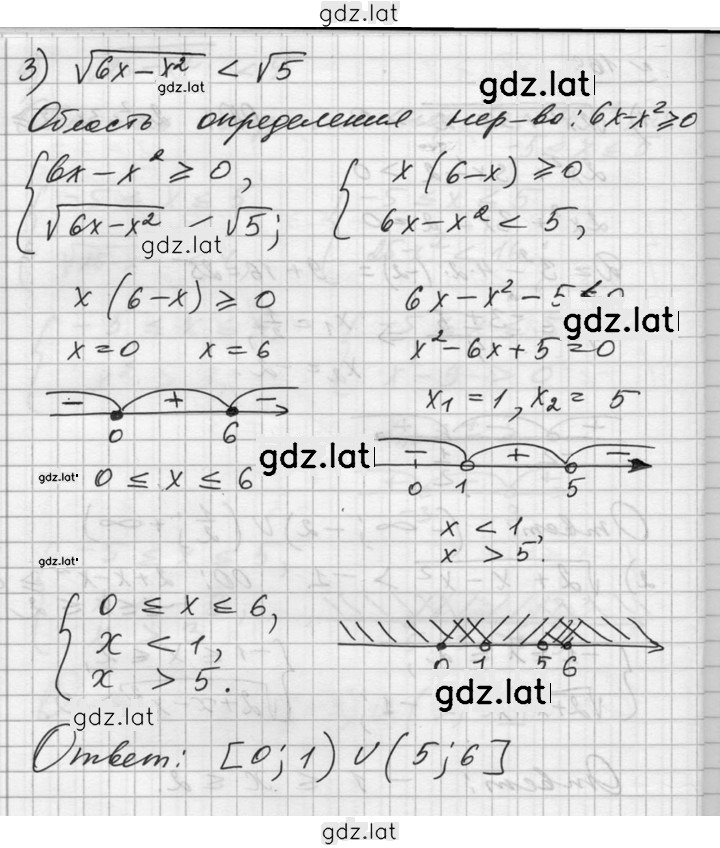 gdz.lat
3) √(6x-x²) < √5
gdz.lat
gdz.lat
Область определения нер-во: 6x-x²⩾0
{ 6x - x² ⩾ 0,
√(6x-x²) < √5;
gdz.lat
{ x(6-x) ⩾ 0
6x - x² < 5,
x(6-x) ⩾ 0
x = 0 x = 6
- + -
0 6
gdz.lat
gdz.lat
0 ≤ x ≤ 6
6x - x² - 5 < 0
gdz.lat
x² - 6x + 5 = 0
x₁ = 1, x₂ = 5
- + -
0 1 5
x < 1,
x > 5.
gdz.lat
{ 0 ≤ x ≤ 6,
x < 1,
x > 5.
0 1 5 6
gdz.lat
gdz.lat
Ответ: [0; 1) ∪ (5; 6]
gdz.lat